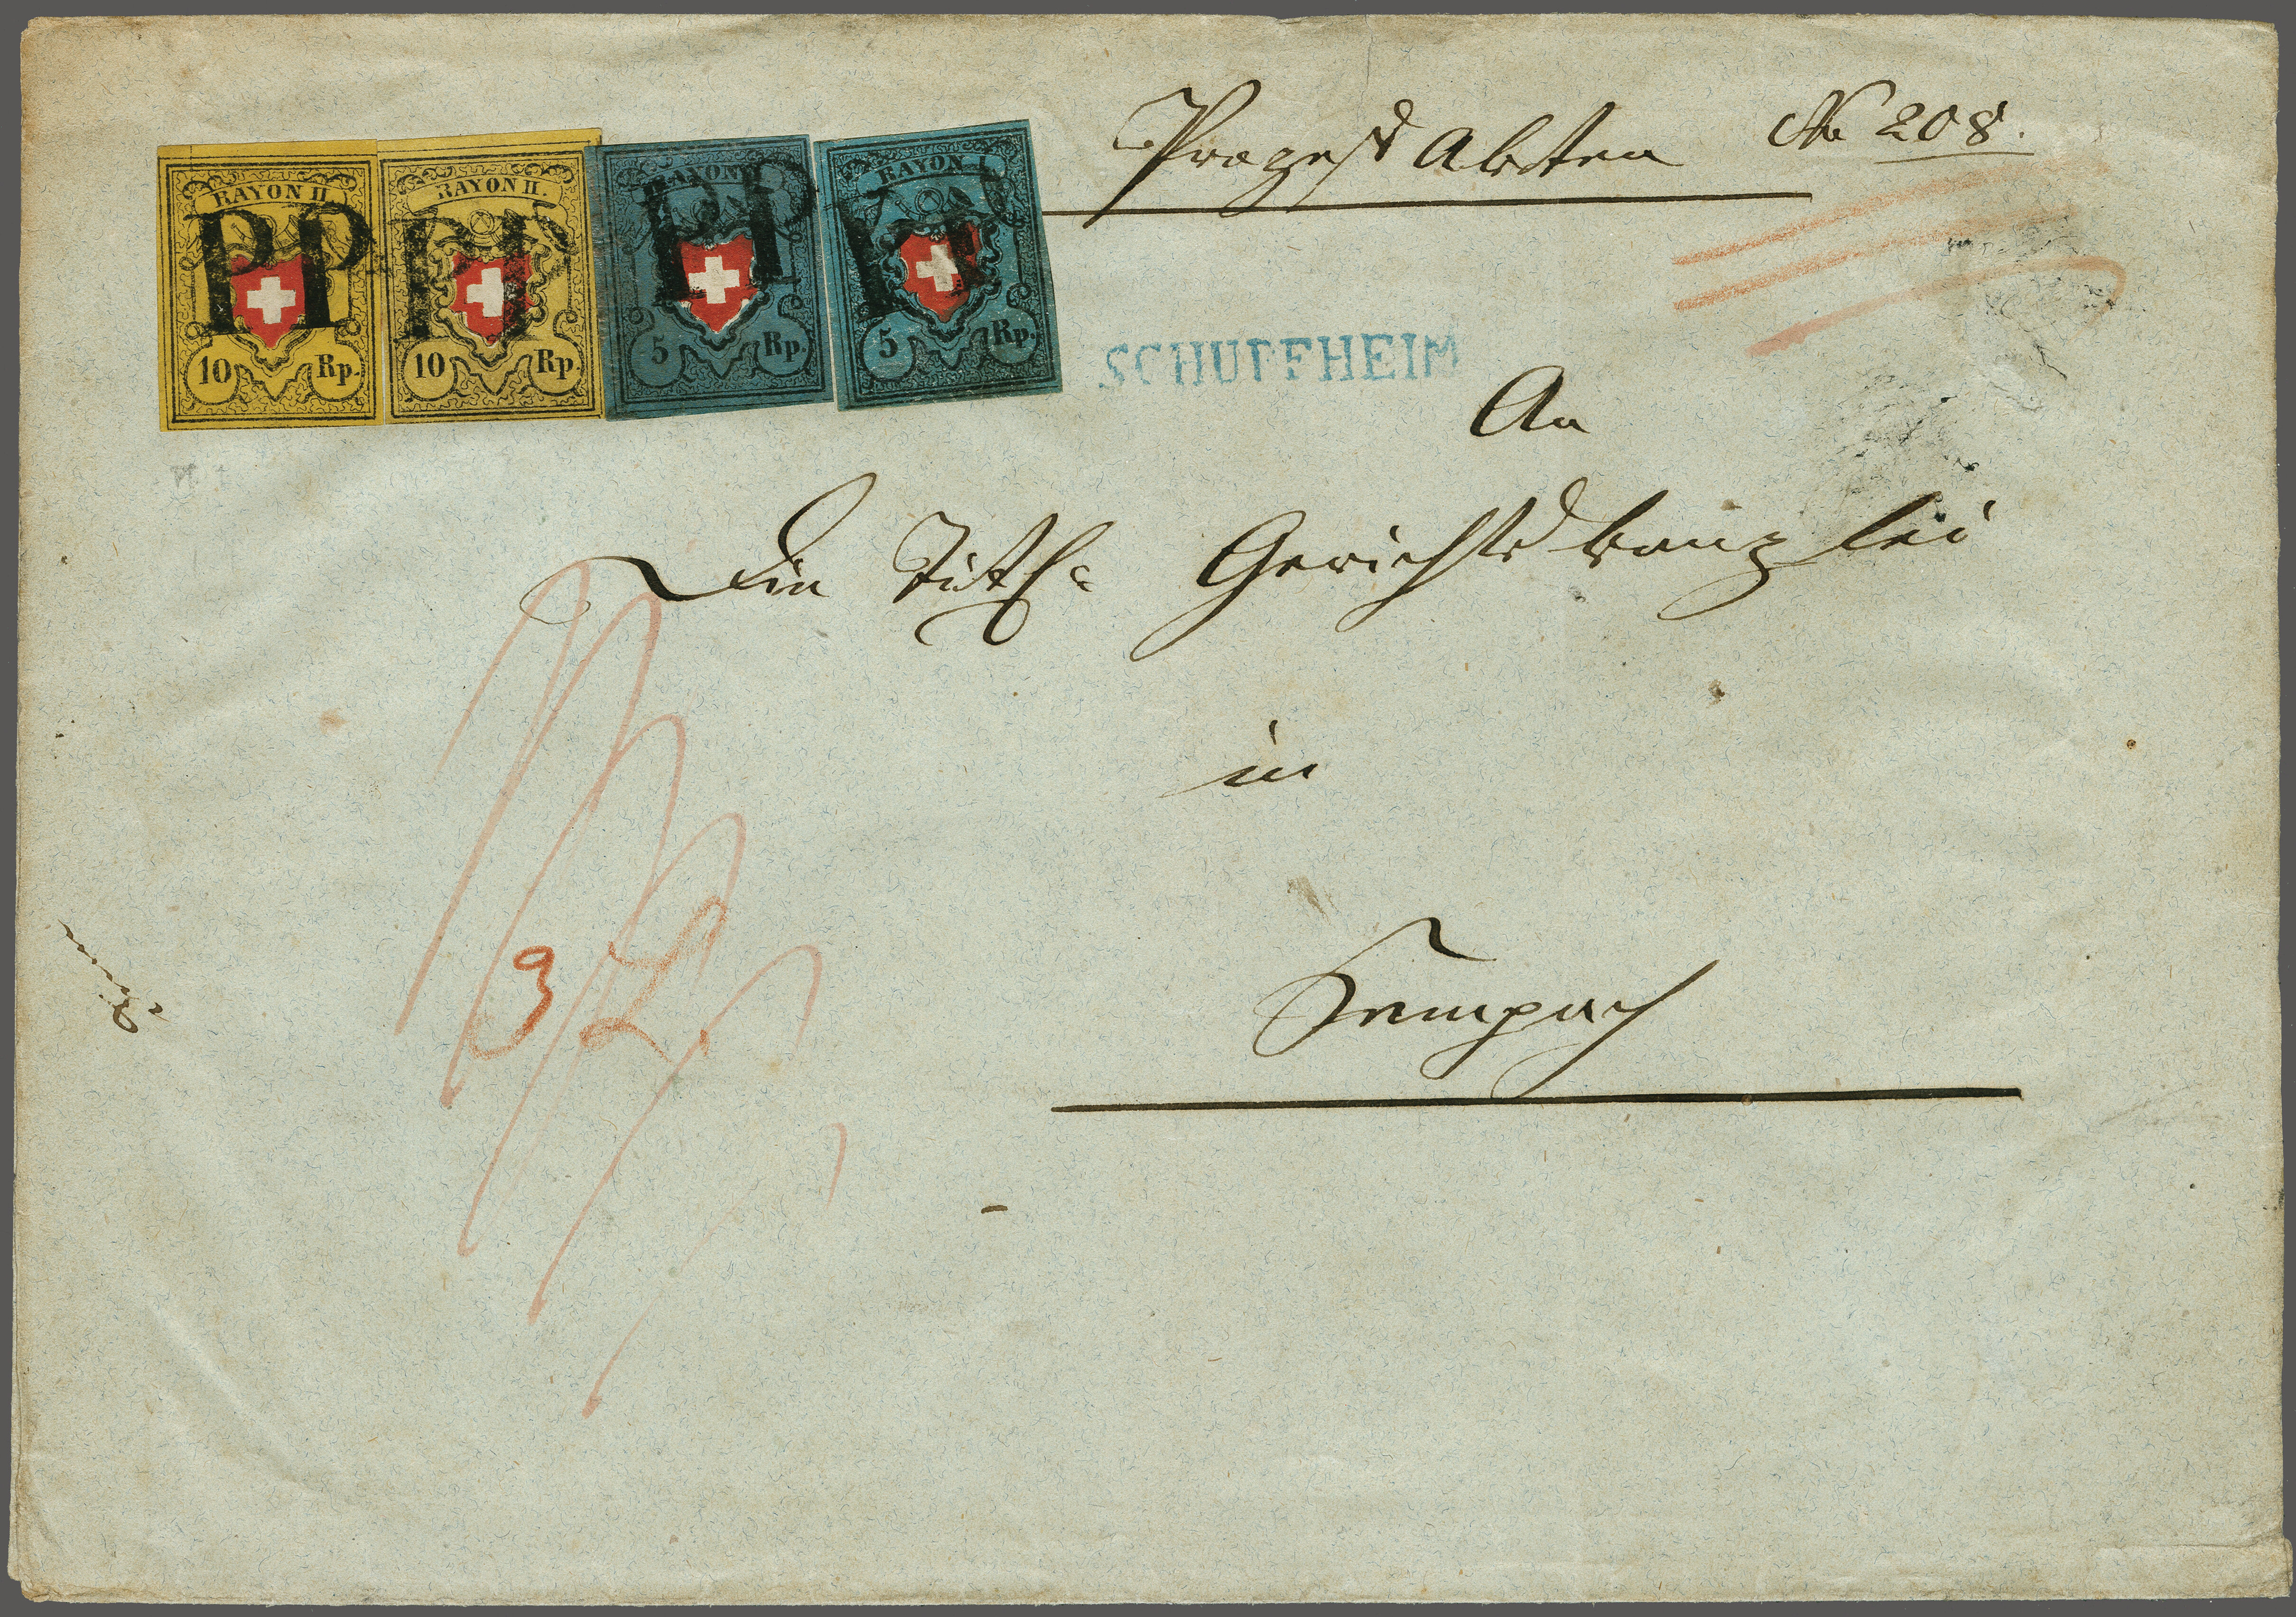 Prozess Akten № 208.
RAYON II.
PP
10 Rp.
RAYON II.
PP
10 Rp.
RAYON I.
PP
5 Rp.
RAYON I.
PP
5 Rp.
SCHUPFHEIM
An
Die Titl. Gerichtskanzlei
in
Sempach